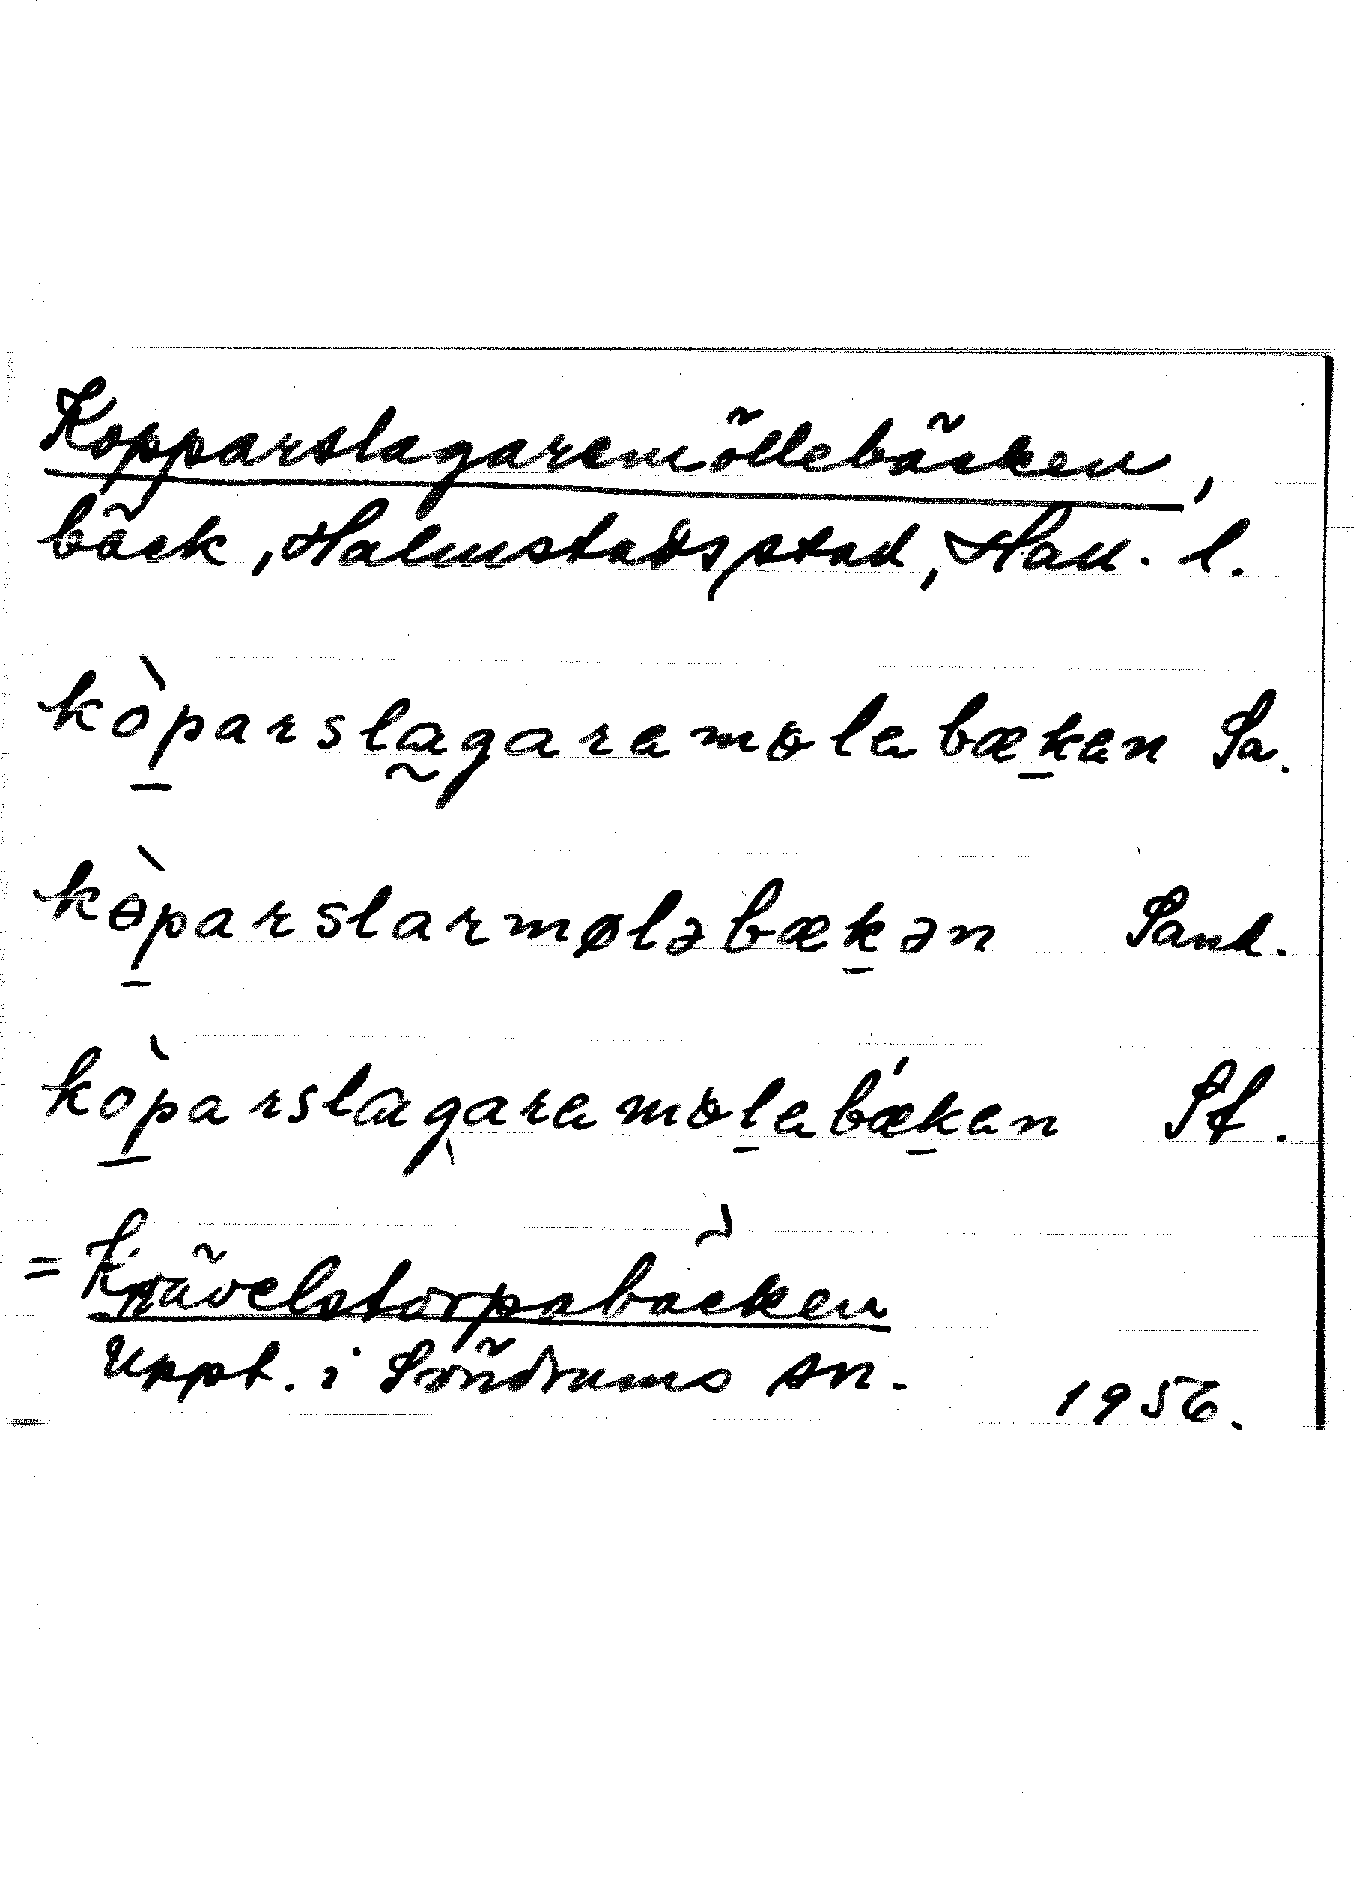 Kopparslagaremöllebäcken,
bäck, Halmstads stad, Hall. l.
kòparslagaramɵlabækan Sa.
kɵ̀parslarmøləbækən Sand.
kòparslagaramɵlabǽkan St.
= Knävelstorpabäcken
Uppt. i Söndrums sn. 1956.